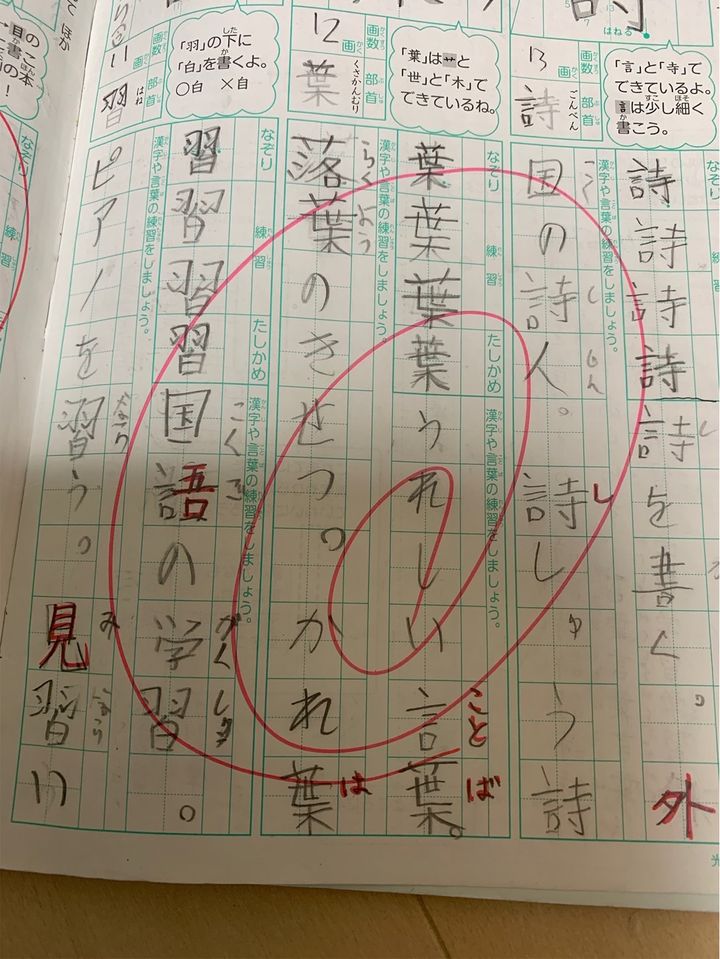 詩
はねる
13
画
画数
詩
ごんべん
部首
「言」と「寺」で
できているよ。
言は少し細く
書こう。
なぞり
練習
漢字や言葉の練習をしましょう。
詩詩詩詩詩を書く。外
国の詩人。詩しゅう詩
12
画
画数
葉
くさかんむり
部首
「葉」は艹と
「世」と「木」で
できているね。
なぞり
練習
たしかめ
漢字や言葉の練習をしましょう。
葉葉葉葉うれしい言葉。
ことば
漢字や言葉の練習をしましょう。
らくよう
落葉のきせつ。かれ葉
は
11
画
画数
習
はね
部首
「羽」の下に
「白」を書くよ。
○白 ×自
なぞり
練習
たしかめ
漢字や言葉の練習をしましょう。
習習習習国語の学習。
こくご
がくしゅう
漢字や言葉の練習をしましょう。
ピアノを習う。見習い
み
なぞり
練習